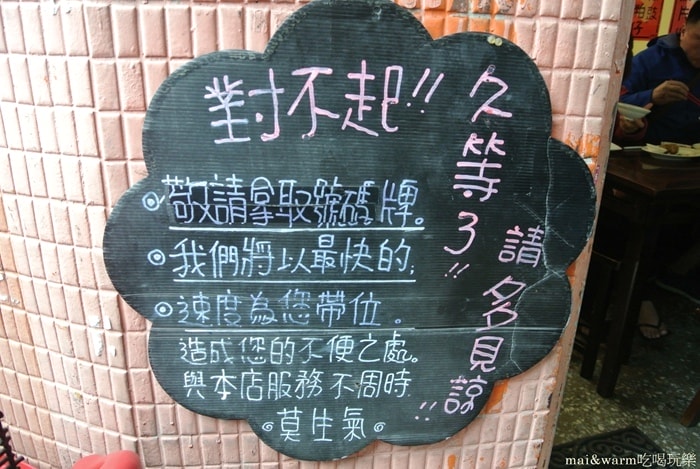 對不起!!
◎敬請拿取號碼牌。
◎我們將以最快的,
◎速度為您帶位。
造成您的不便之處。
與本店服務不周時.
◎莫生氣◎
久等了!!
請多見諒!!
mai&warm吃喝玩樂